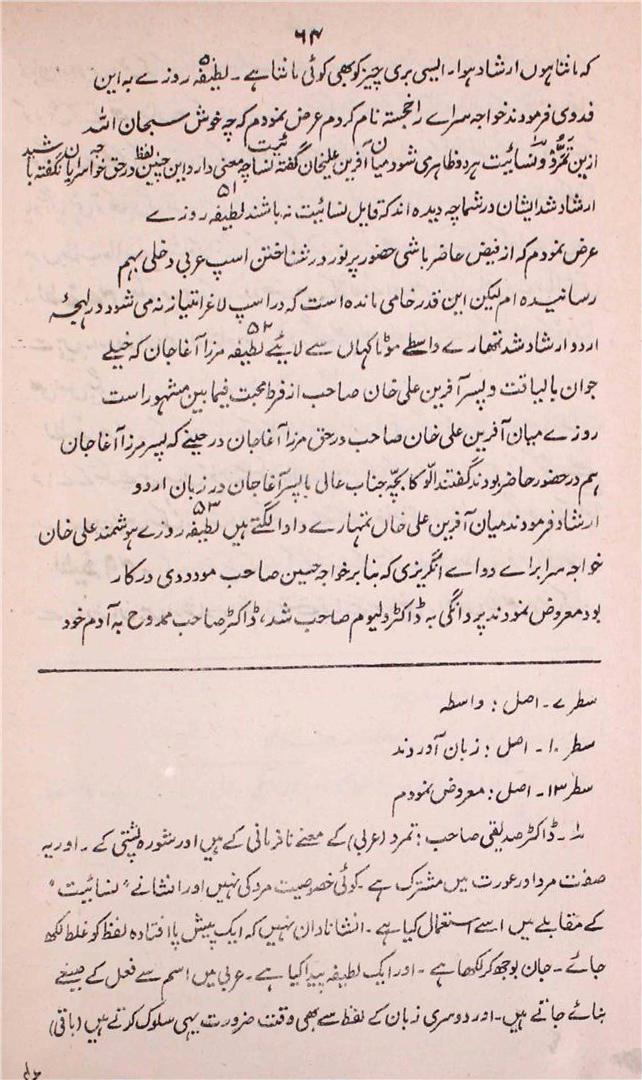 ۶۴
کہ مانتا ہوں ارشاد ہوا۔ ایسی بری چیز کو بھی کوئی مانتا ہے۔ لطیفہ ۵۰ روزے بہ این
فدوی فرمودند خواجہ سراے را خجستہ نام کردم عرض نمودم کہ چہ خوش سبحان اللہ
ازین تمرّد و نسائیت ہر دو ظاہری شود میان آفرین علیخان گفتہ نسائیت چہ معنی دارد این چنین لفظ در حق خواجہ سرایان گفتہ باشید
ارشاد شد ایشان در شما چہ دیدہ اند کہ قایل نسائیت نہ باشند لطیفہ ۵۱ روزے
عرض نمودم کہ از فیض حاضر باشی حضور پر نور در شناختن اسپ عربی دخلی بہم
رسانیدہ ام لیکن این قدر خامی ماندہ است کہ در اسپ لاغر امتیاز نہ می شود در لہجۂ
اردو ارشاد شد تمھارے واسطے موٹا کہاں سے لایئے لطیفہ ۵۲ مرزا آغا جان کہ خیلے
جوان با لیاقت و پسر آفرین علی خان صاحب از فرط محبت فیما بین مشہور است
روزے میان آفرین علی خان صاحب در حق مرزا آغا جان در حینے کہ پسر مرزا آغا جان
ہم در حضور حاضر بودند گفتند الّو کا بچّہ جناب عالی با پسر آغا جان در زبان اردو
ارشاد فرمودند میان آفرین علی خاں تمہارے دادا لگتے ہیں لطیفہ ۵۳ روزے ہوشمند علی خان
خواجہ سرا براے دواے انگریزی کہ بنا بر خواجہ حسین صاحب مودودی درکار
بود معروض نمودند پردانگی بہ ڈاکٹر ولیوم صاحب شد، ڈاکٹر صاحب ممدوح بہ آدم خود
سطر ۷۔ اصل: واسطہ
سطر ۱۰۔ اصل: زبان آوردند
سطر ۱۳۔ اصل: معروض نمودم
۱؎۔ ڈاکٹر صدیقی صاحب: تمرد (عربی) کے معنے نافرمانی کے ہیں اور شورہ پشتی کے۔ اور یہ
صفت مرد اور عورت میں مشترک ہے۔ کوئی خصوصیت مرد کی نہیں اور انشا نے "نسائیت"
کے مقابلے میں اسے استعمال کیا ہے۔ انشا نادان نہیں کہ ایک پیش پا افتادہ لفظ کو غلط لکھ
جائے۔ جان بوجھ کر لکھا ہے۔ اور ایک لطیفہ پیدا کیا ہے۔ عربی میں اسم سے فعل کے صیغے
بنائے جاتے ہیں۔ اور دوسری زبان کے لفظ سے بھی وقت ضرورت یہی سلوک کرتے ہیں (باقی)